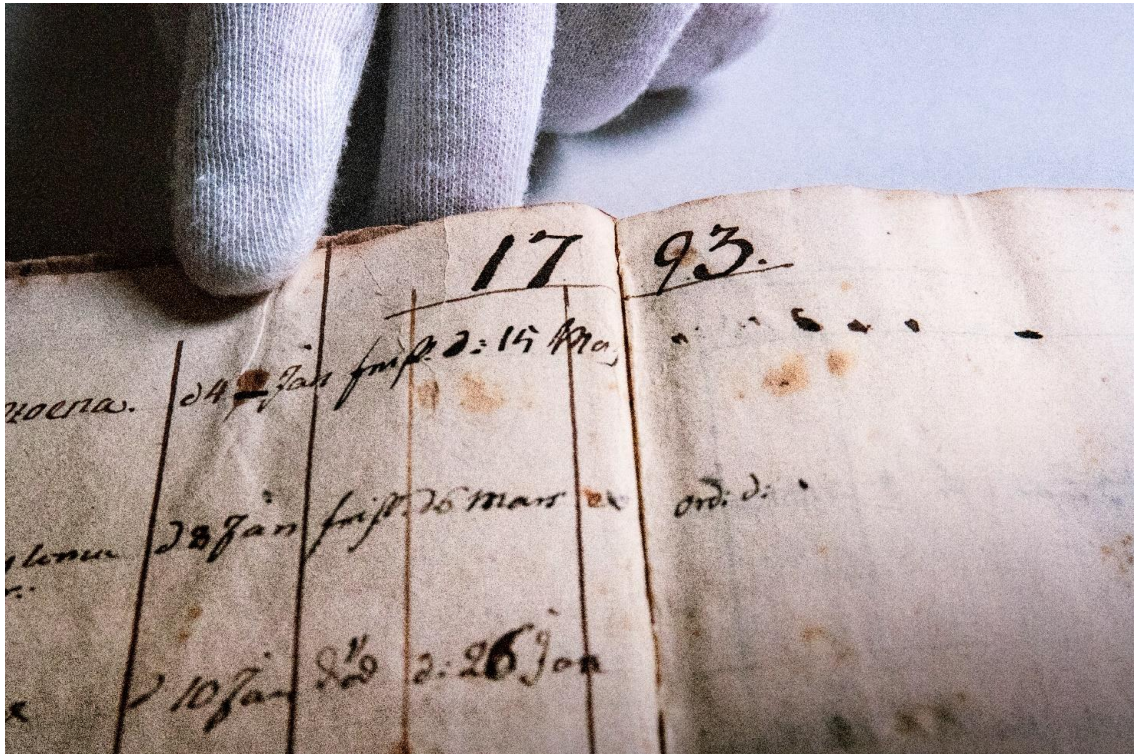 17 93.
d 4 Jan frisk. d: 15 Maj
d 8 Jan frisk. d 6 Mars
ord: d:
d 10 Jan död d: 26 Jan